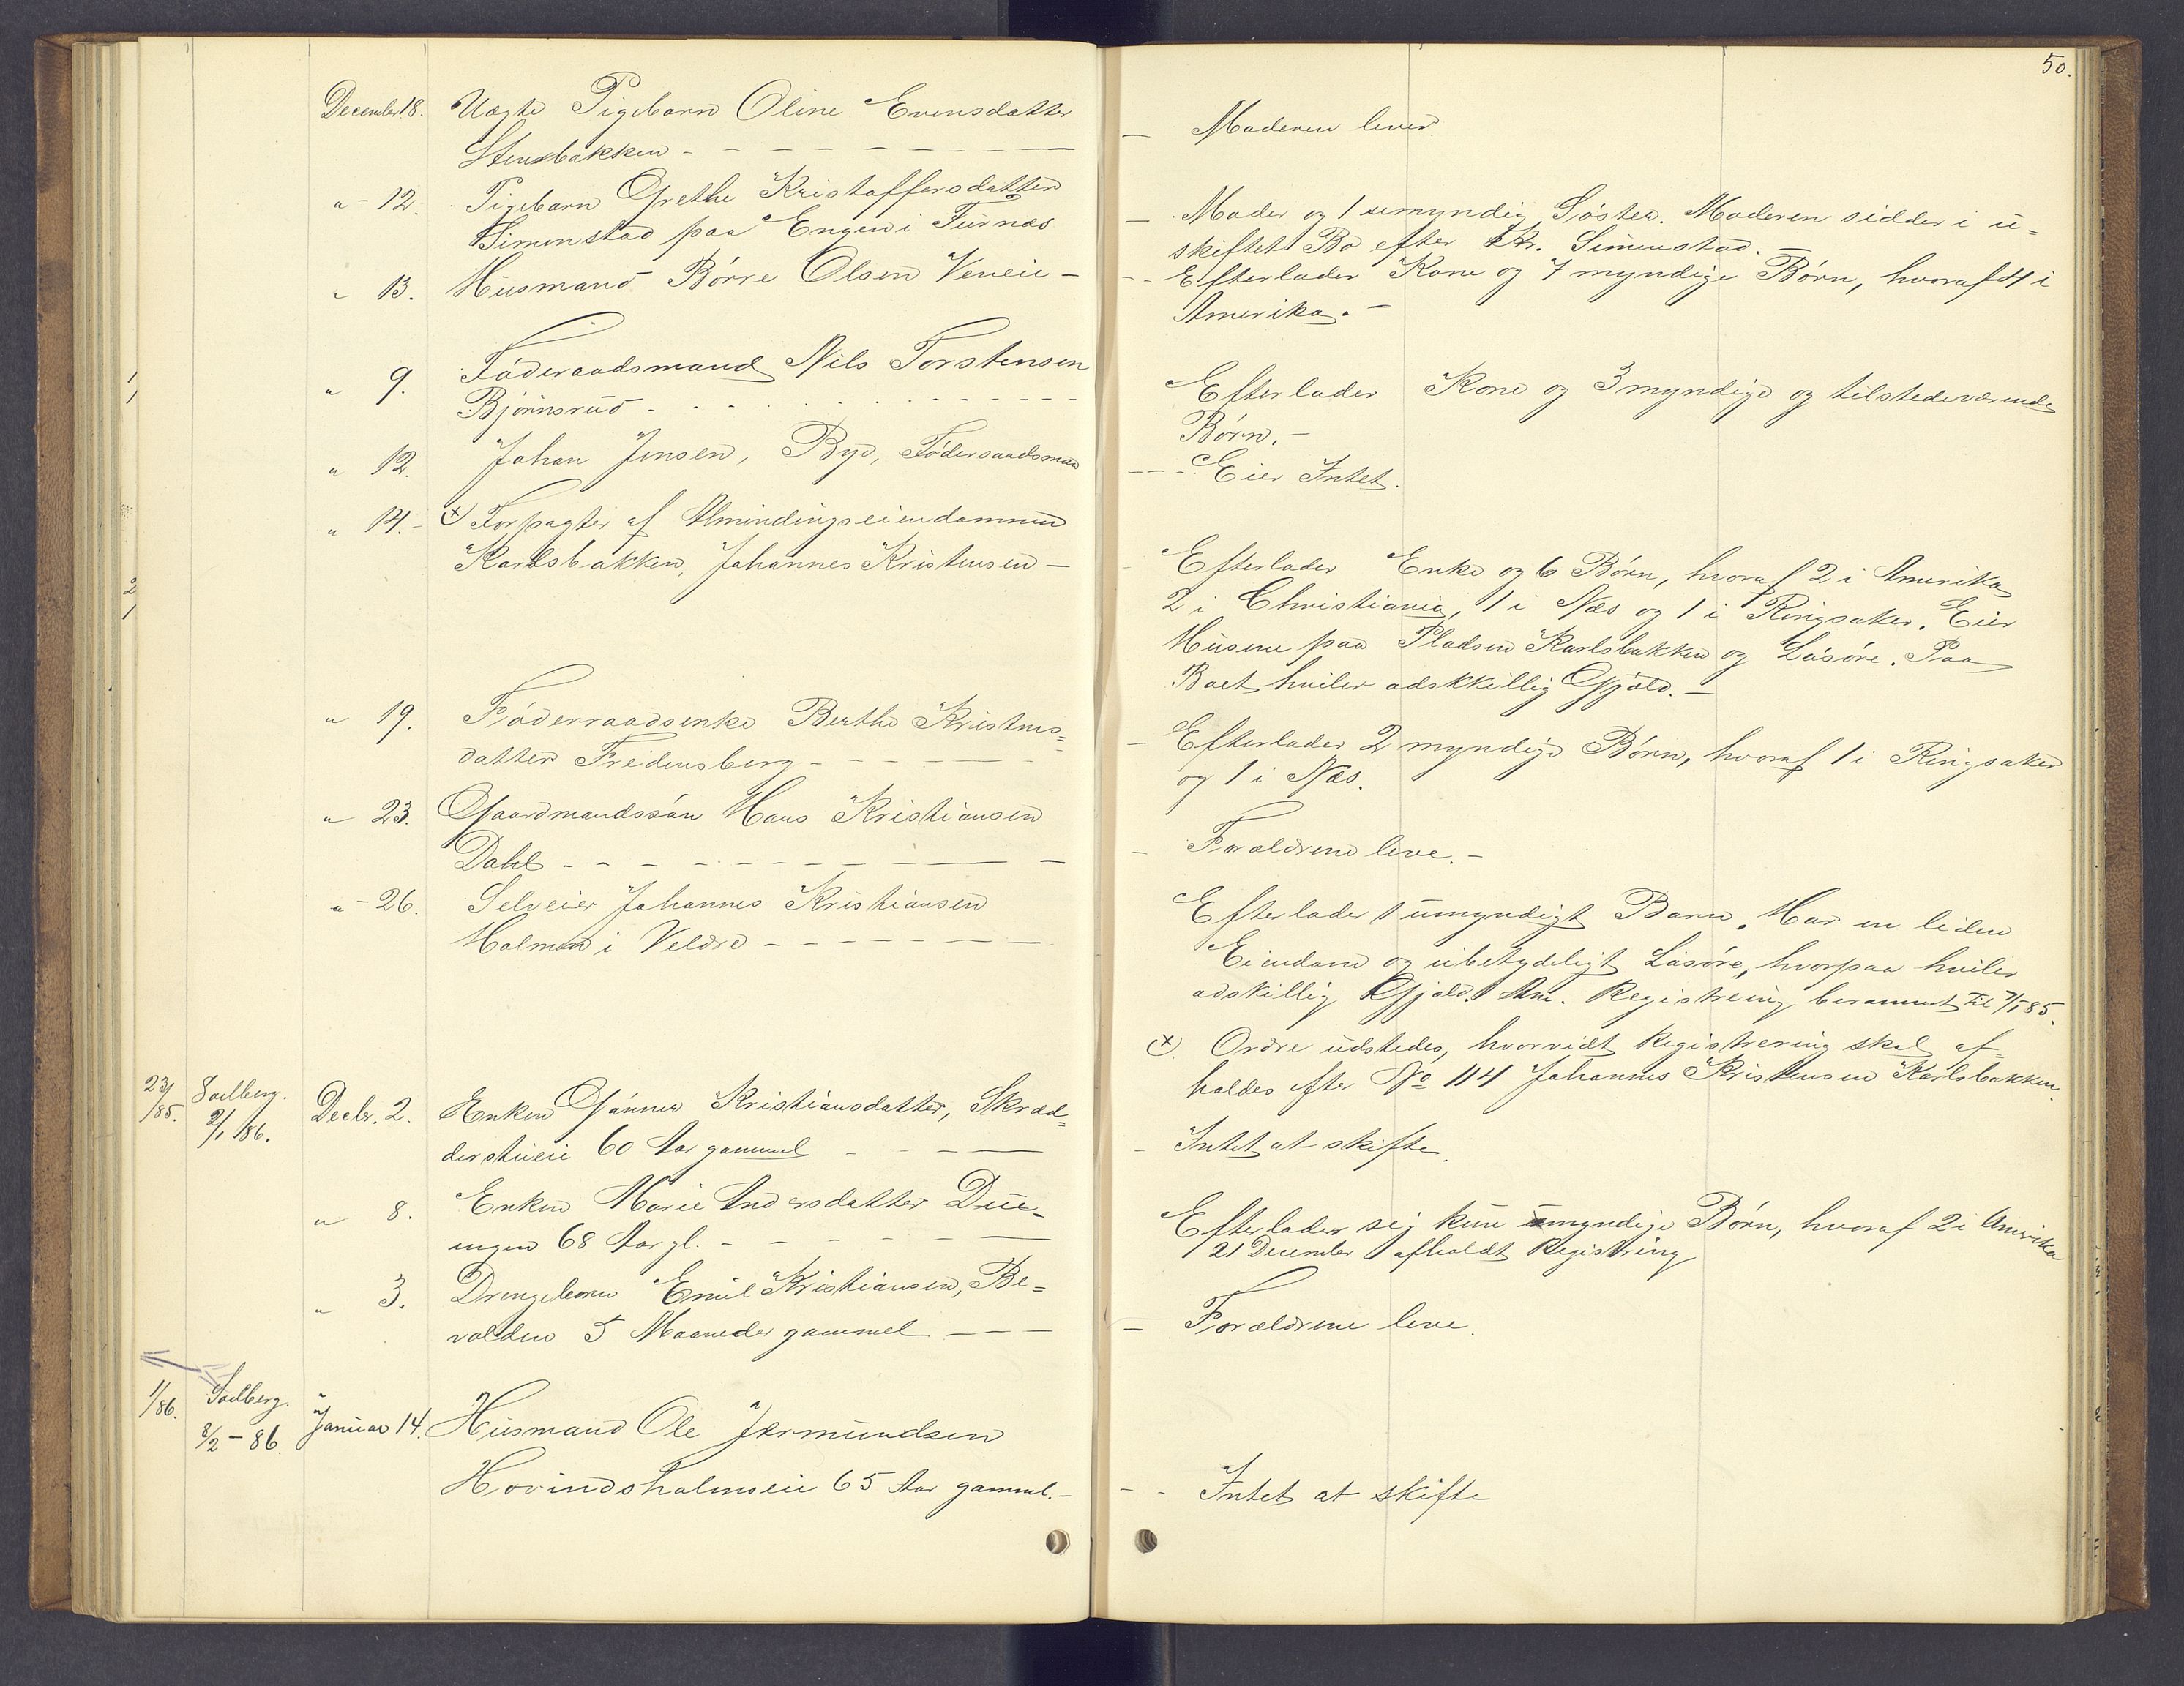 50.
December 18. Uægte Pigebarn Oline Evensdatter
Stensbakken - - - - - - - -
— Moderen lever.
" - 12. Pigebarn Grethe Kristoffersdatter
Simenstad paa Engen i Furnæs
— Moder og 1 umyndig Søster. Moderen sidder i u=
skiftet Bo efter Kr. Simenstad.
" 13. Husmand Børre Olsen Veneie -
- - Efterlader Kone og 7 myndige Børn, hvoraf 4 i
Amerika. -
" 9. Føderaadsmand Nils Torstensen
Bjørnsrud - - - - - - - - - -
Efterlader Kone og 3 myndige og tilstedeværende
Børn. -
" 12. Johan Jensen, Bye, Føderaadsman
- - - Eier Intet.
" 14. - (x) Forpagter af Almindingseiendommen
Karlsbakken, Johannes Kristensen —
- Efterlader Enke og 6 Børn, hvoraf 2 i Amerika
2 i Christiania, 1 i Næs og 1 i Ringsaker. Eier
Husene paa Pladsen Karlsbakken og Løsøre. Paa
Boet hviler adskkillig Gjæld. —
" 19. Føderraadsenke Berthe Kristens=
datter Fredensberg - - - - - -
— Efterlader 2 myndige Børn, hvoraf 1 i Ringsaker
og 1 i Næs.
" 23. Gaardmandssøn Hans Kristiansen
Dahl - - - - - - - - - -
- Forældrene leve. -
" - 26. Selveier Johannes Kristiansen
Holmen i Veldre - - - - - - -
Efterlader 1 umyndigt Barn. Har en liden
Eiendom og ubetydeligt Løsøre, hvorpaa hviler
adskillig Gjæld. Anm. Registrering berammet til 7/1 85.
(x). Ordre udstedes, hvorvidt Registrering skal af=
holdes efter No 114 Johannes Kristensen Karlsbakken.
23/ /85. Sadberg. 2/1 86. Decbr. 2. Enken Gunner Kristiansdatter, Skræd=
derstueie 60 Aar gammel - - - -
- Intet at skifte.
" 8. Enken Marie Andersdatter Due-
ungen 68 Aar gl. - - - - - -
Efterlader sig kun myndige Børn, hvoraf 2 i Amerika
21 December afholdt Registring
" 3. Drengebarn Emil Kristiansen, Be=
volden 5 Maaneder gammel - - -
— Forældrene leve.
1/86. Sadberg. 8/2 - 86. Januar 14. Husmand Ole Jermundsen
Hovindsholmseie 65 Aar gammel. -
- - Intet at skifte